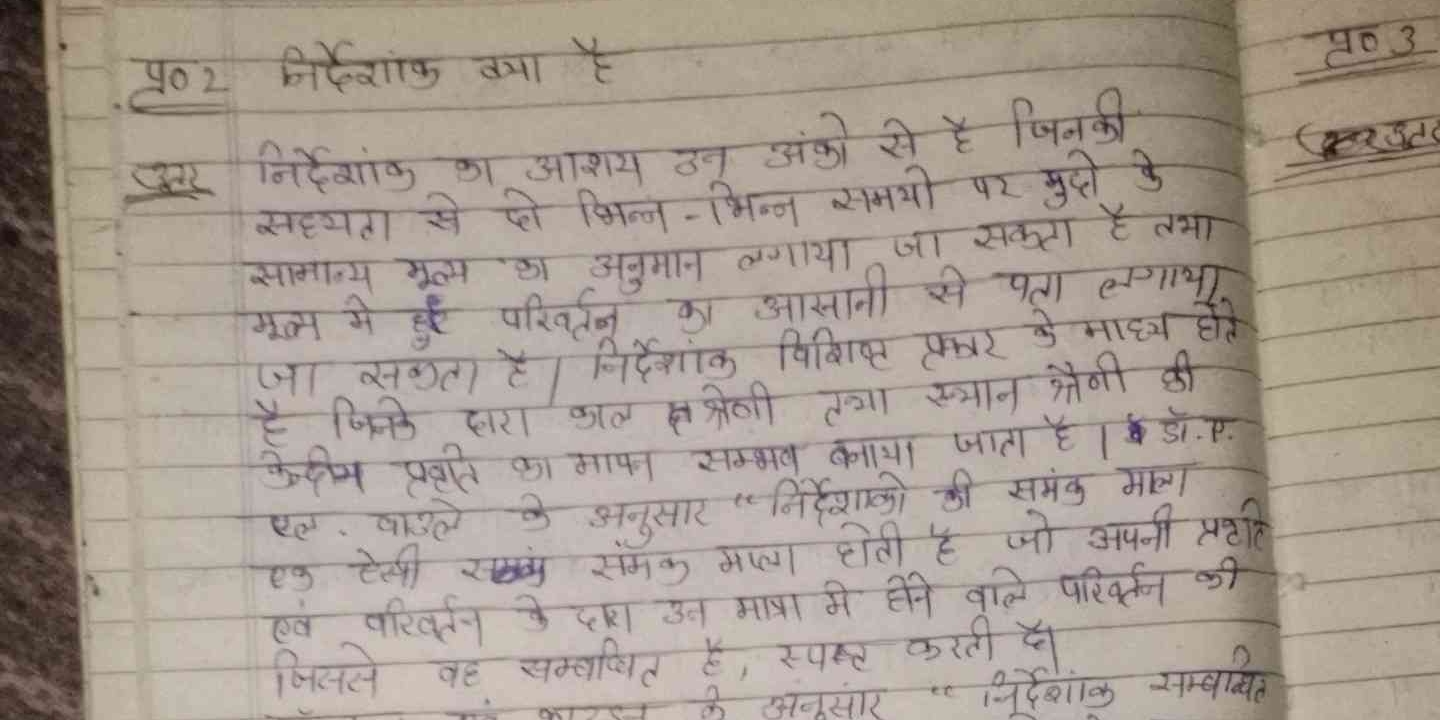 प्र० 2 निर्देशांक क्या है
उत्तर निर्देशांक का आशय उन अंको से है जिनकी
सहायता से दो भिन्न - भिन्न समयो पर मुद्रो के
सामान्य मूल्य का अनुमान लगाया जा सकता है तथा
मूल्य मे हुए परिवर्तन का आसानी से पता लगाया
जा सकता है। निर्देशांक विशिष्ट प्रकार के माध्य होते
है जिनके द्वारा काल श्रेणी तथा स्थान श्रेनी की
केन्द्रीय प्रवृति का मापन सम्भव बनाया जाता है। डॉ. ए.
एल. वाउले के अनुसार “निर्देशाको की समंक माला
एक ऐसी समंक माला होती है जो अपनी प्रवृति
एवं परिवर्तन के द्वारा उन मात्रा मे होने वाले परिवर्तन की
जिससे वह सम्बन्धित है, स्पष्ट करती है।
के अनुसार “निर्देशांक सम्बन्धित
प्र० 3
उत्तर